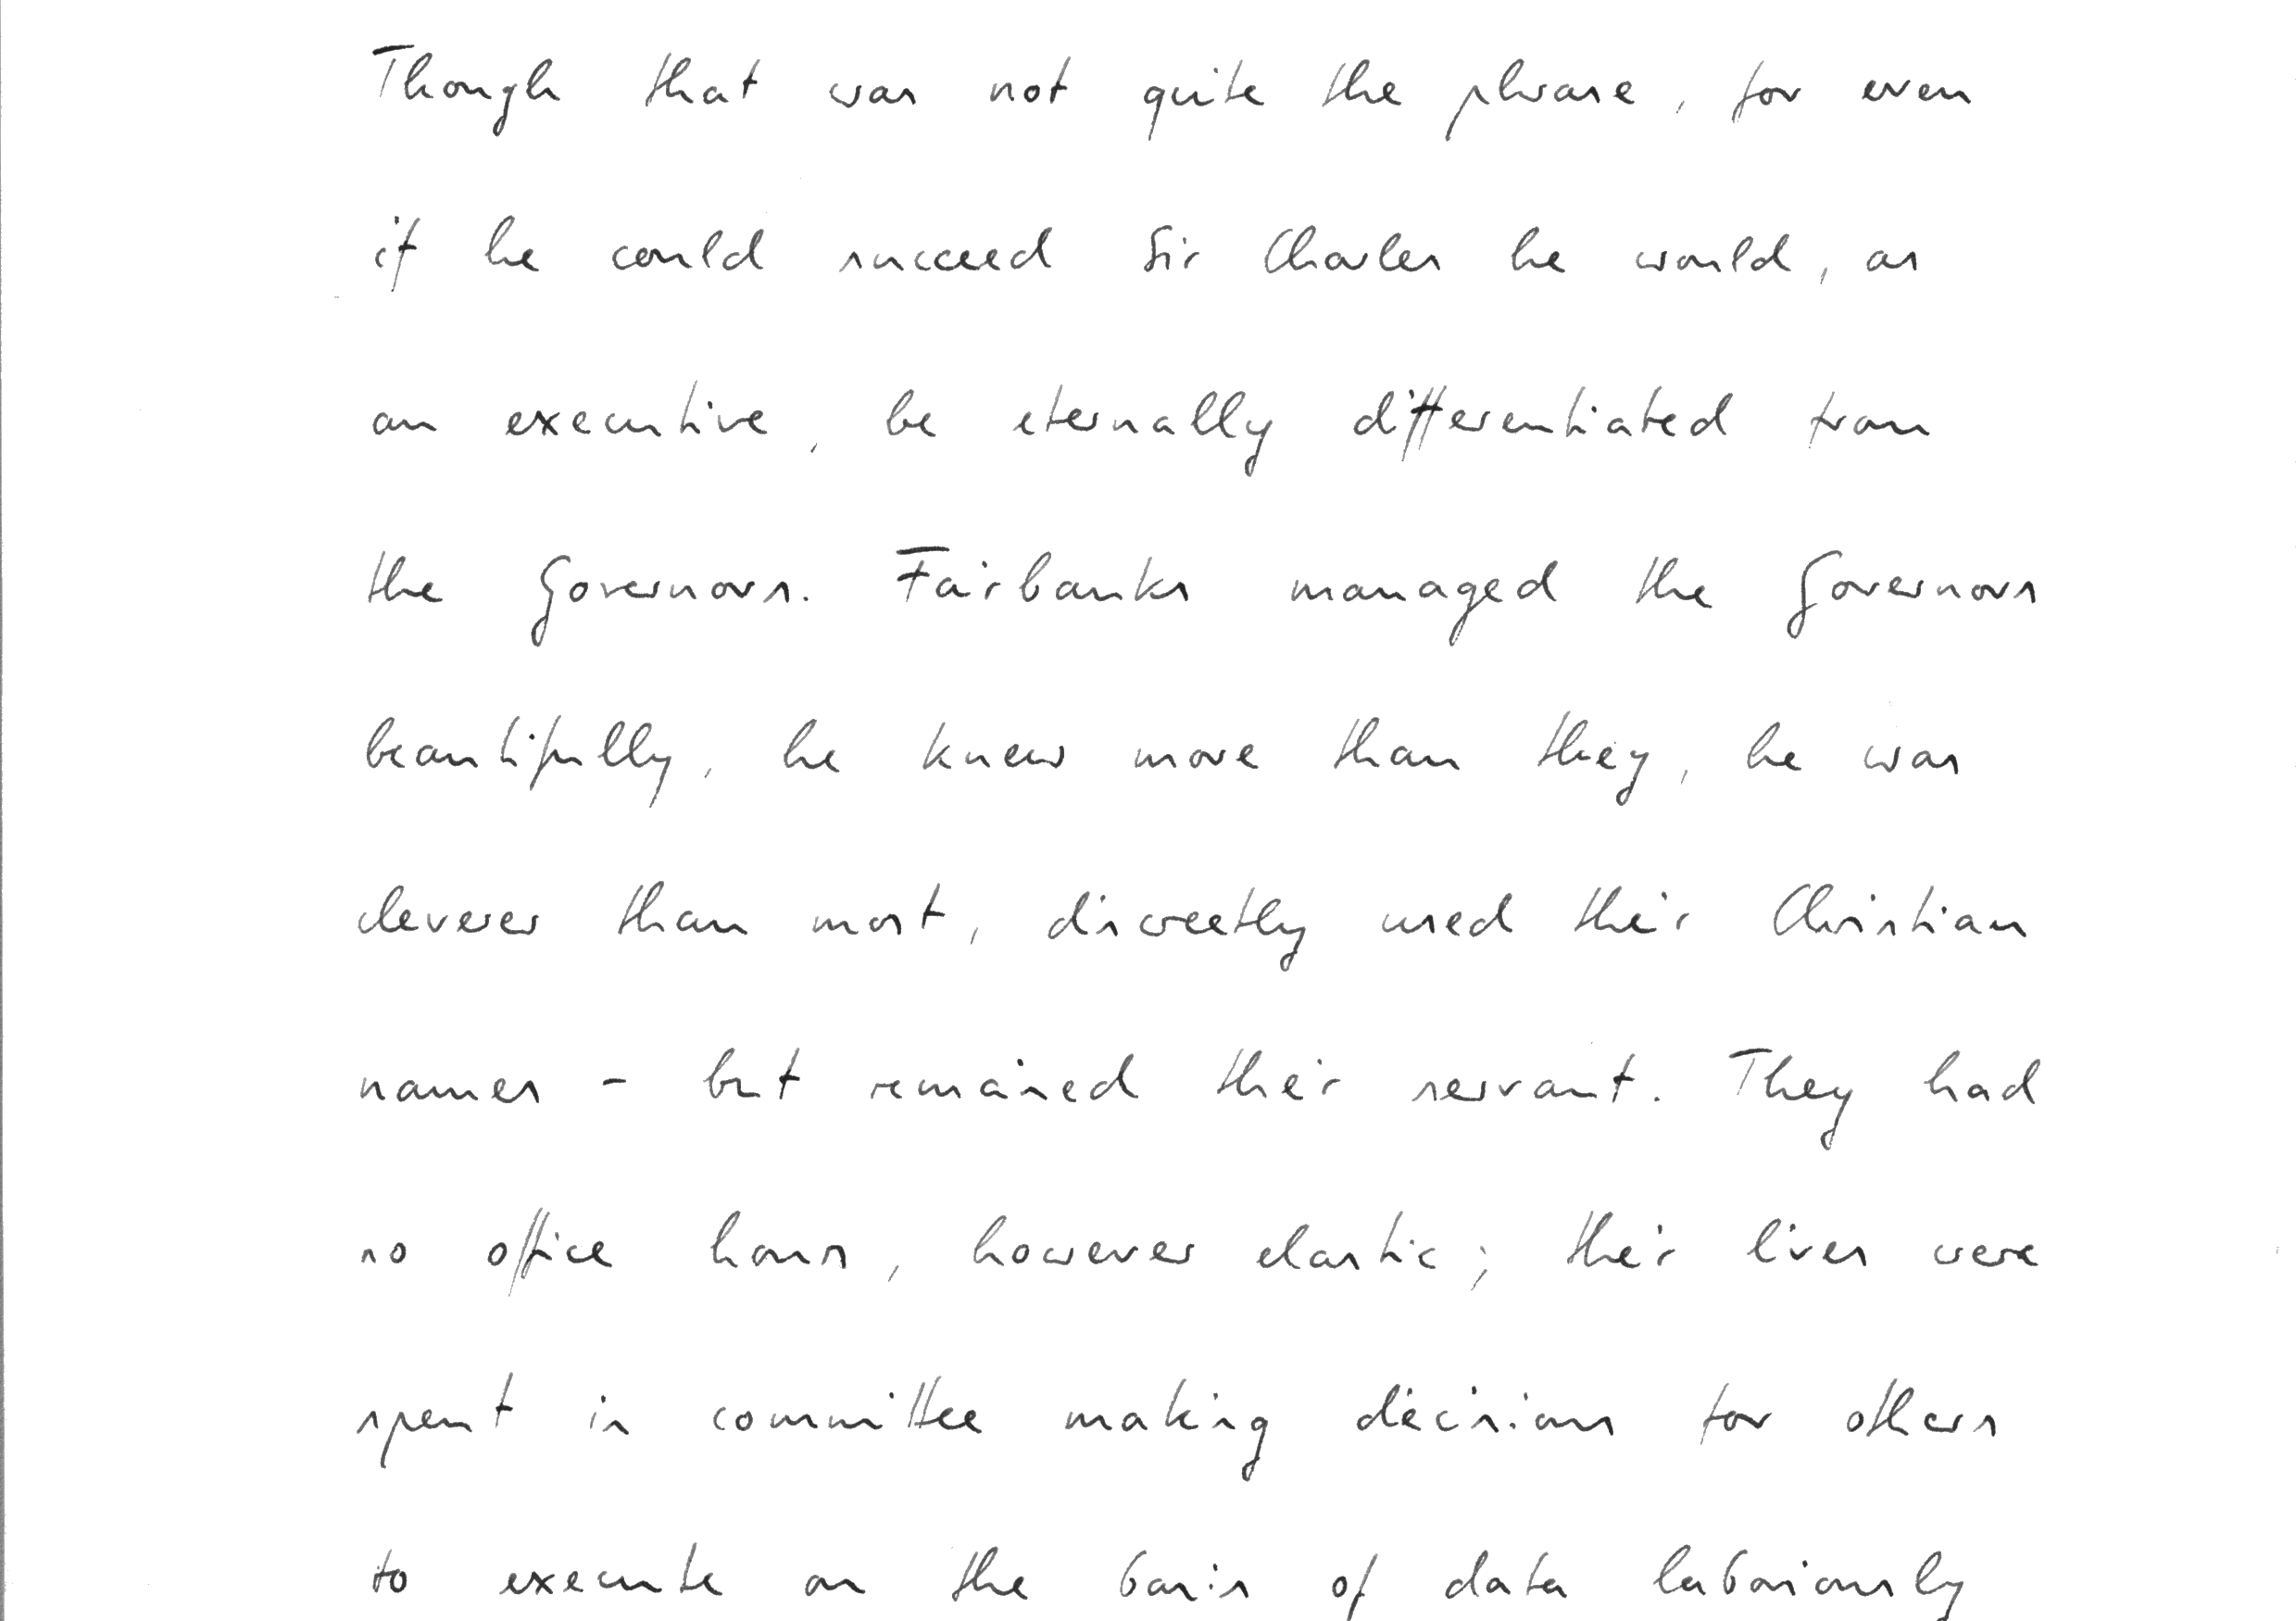 Though that was not quite the phrase, for even
if he could succeed Sir Charles he would, as
an executive, be eternally differentiated from
the Governors. Fairbanks managed the Governors
beautifully, he knew more than they, he was
cleverer than most, discreetly used their Christian
names - but remained their servant. They had
no office hours, however elastic; their lives were
spent in committee making decisions for others
to execute on the basis of data laboriously